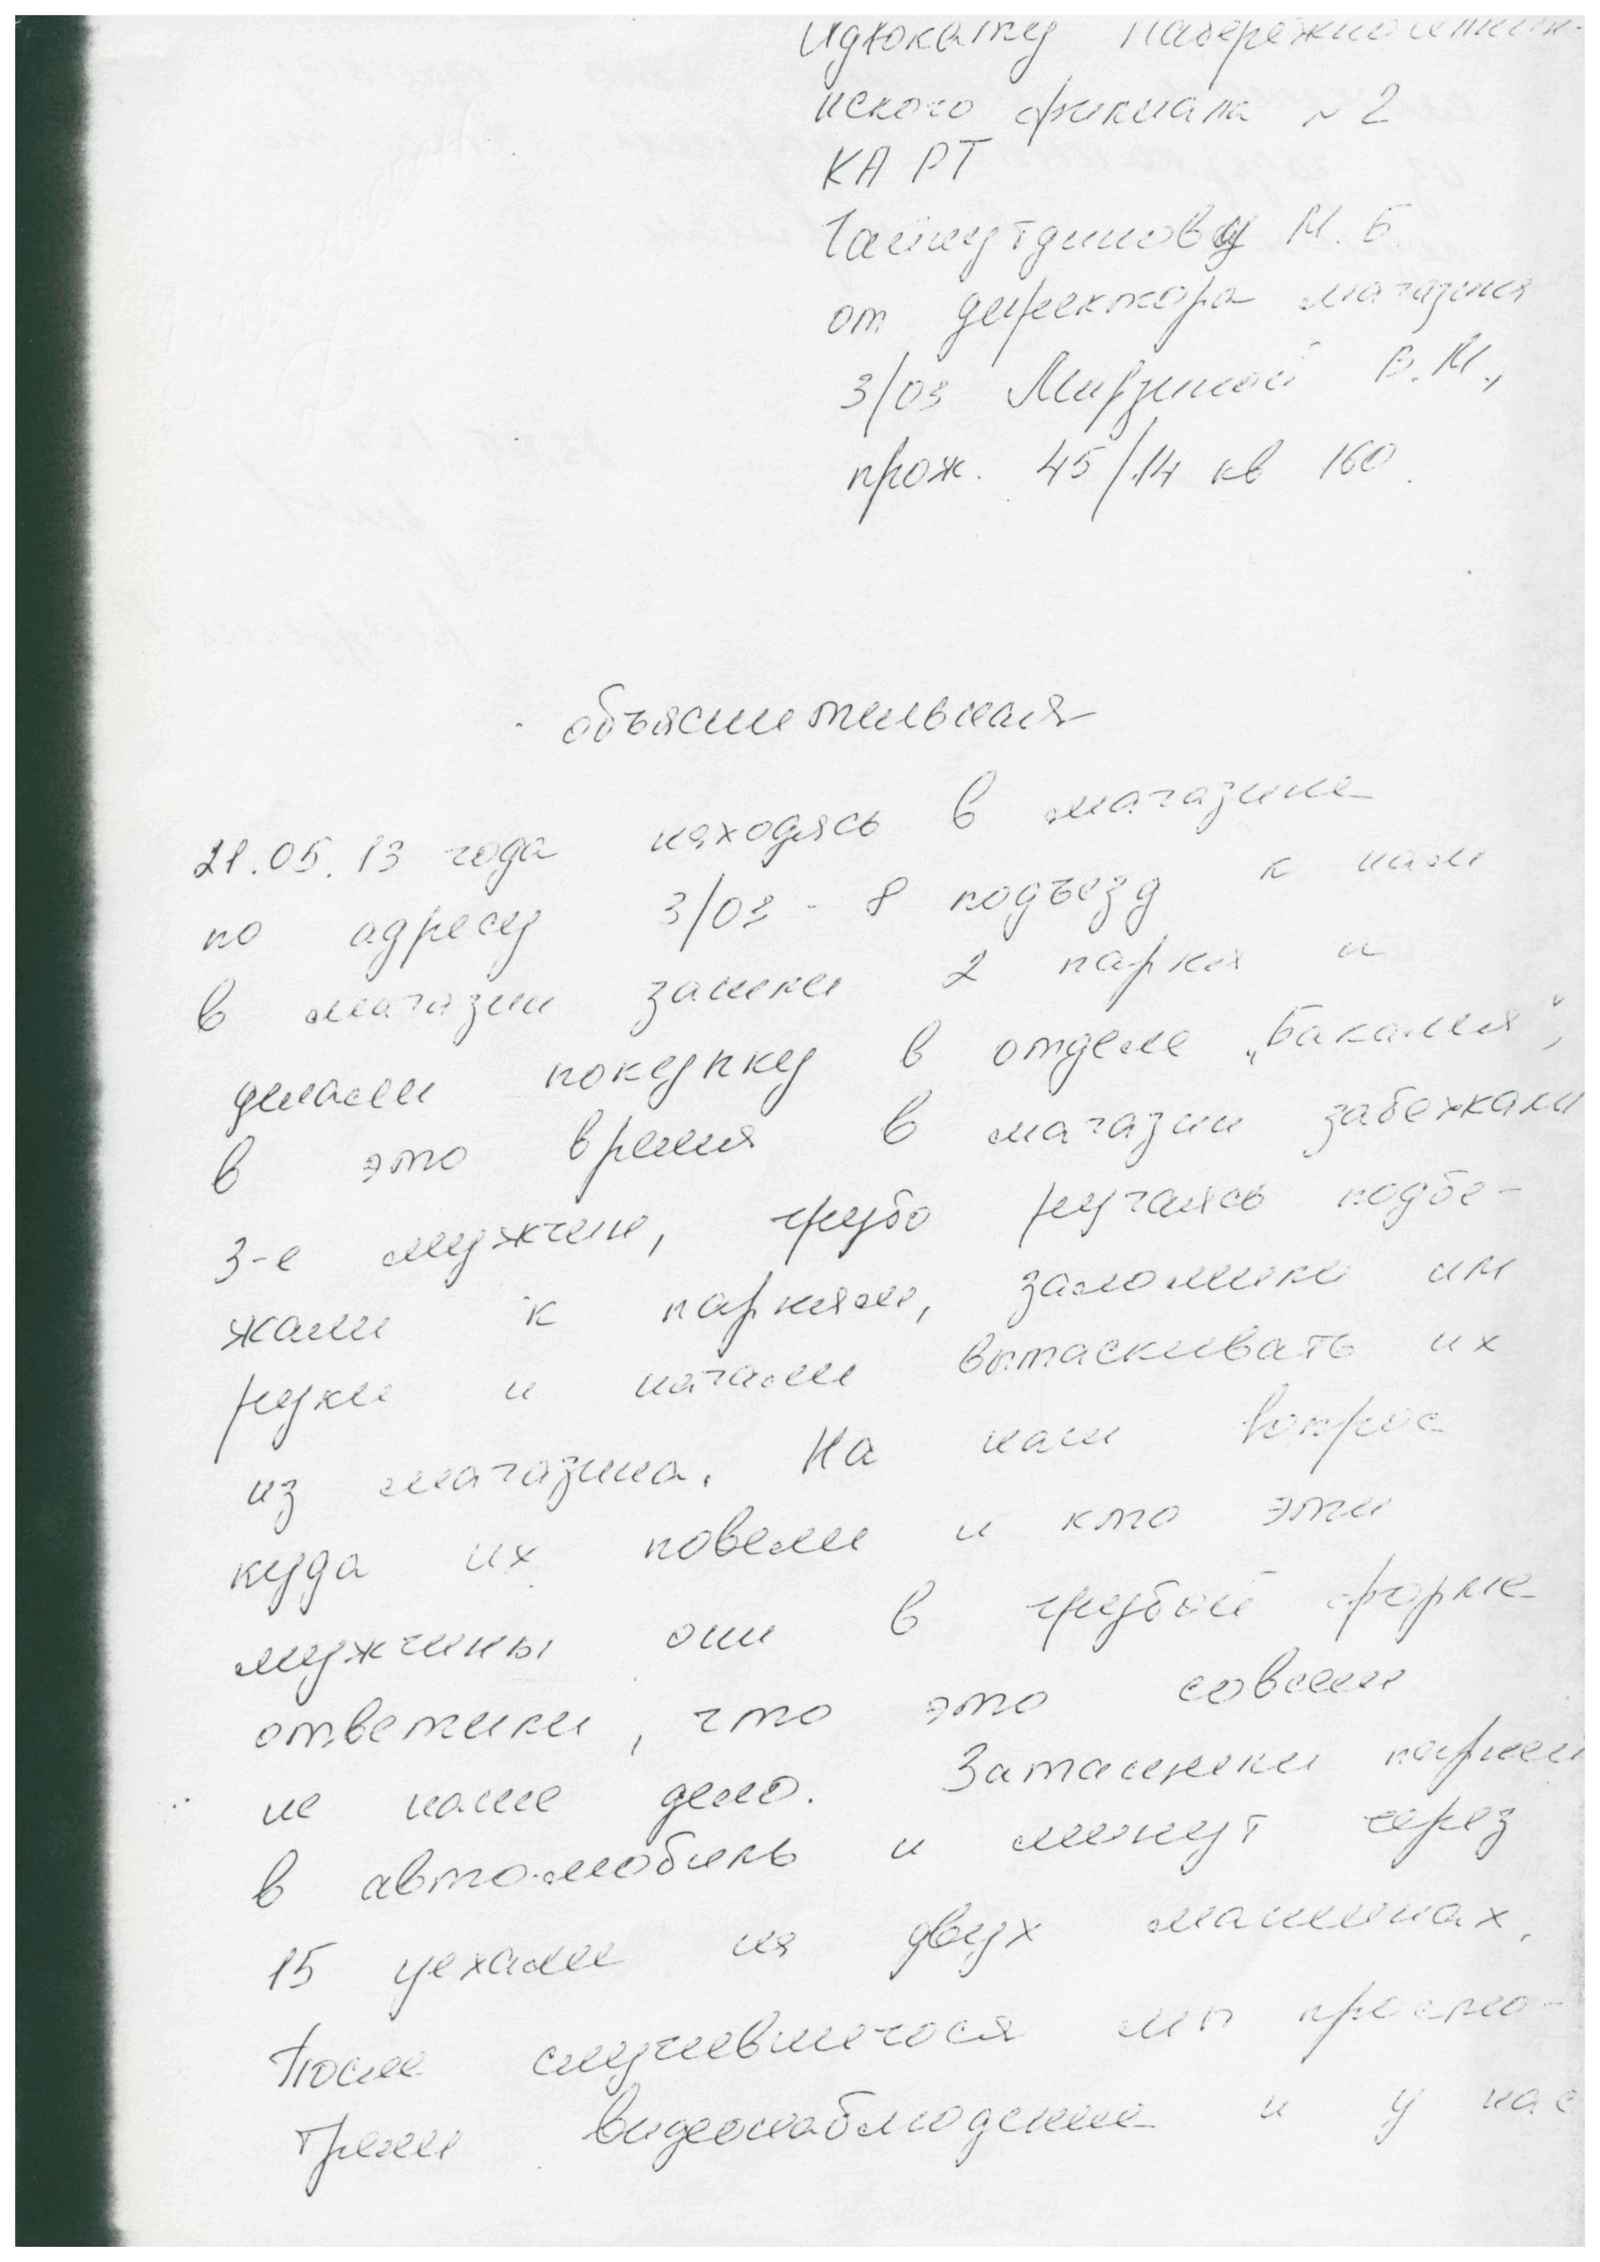 Адвокату Набережночелнин-
иского филиала № 2
КА РТ
Гайнутдинову М. Б.
от директора магазина
3/03 Мирзиной В. М.,
прож. 45/14 кв 160
объяснительная
21.05.13 года находясь в магазине
по адресу 3/03 - 8 подъезд к нам
в магазин зашли 2 парня и
делали покупку в отделе „Бакалея",
в это время в магазин забежали
3-е мужчин, грубо ругаясь подбе-
жали к парням, заломили им
руки и начали вытаскивать их
из магазина. На наш вопрос
куда их повели и кто эти
мужчины они в грубой форме
ответили, что это совсем
не наше дело. Заташили парней
в автомобиль и минут через
15 уехали на двух машинах.
После случившегося мы просмо-
трели видеонаблюдение и у нас